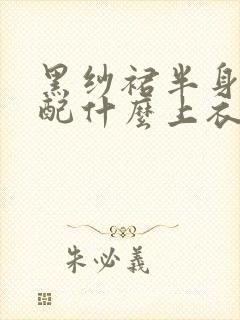 黑纱裙半身
配什麼上衣
朱必義